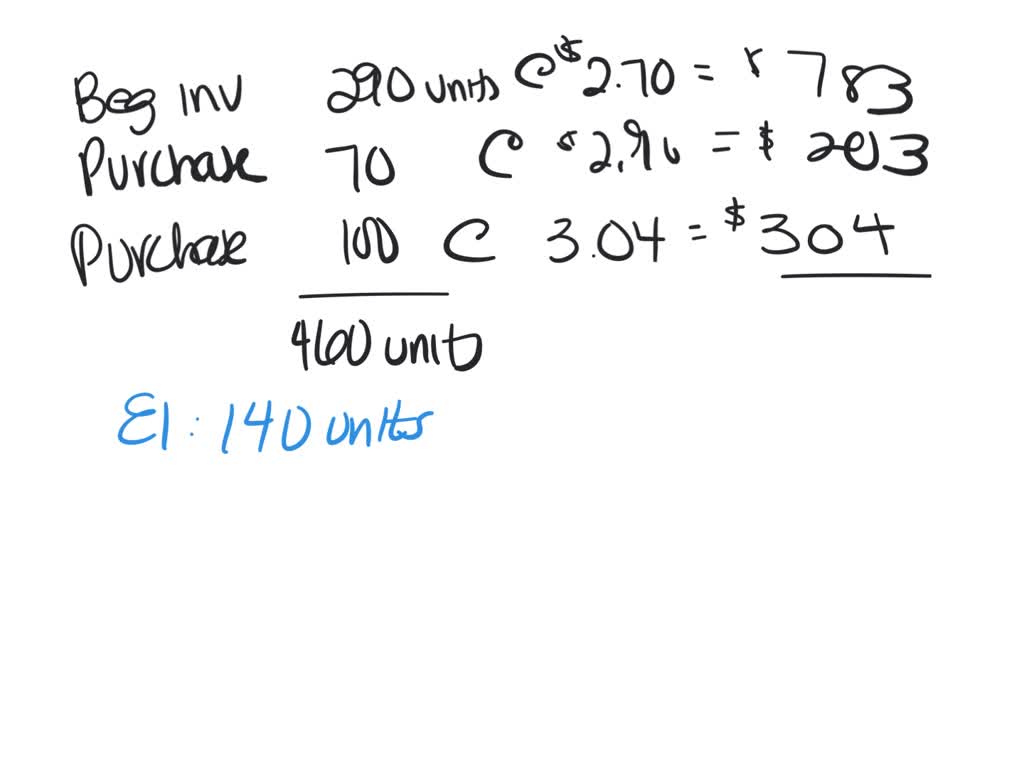 Beg inv 290 units @ $2.70 = $ 783
Purchase 70 @ $2.90 = $ 203
Purchase 100 @ 3.04 = $304
460 units
EI: 140 units